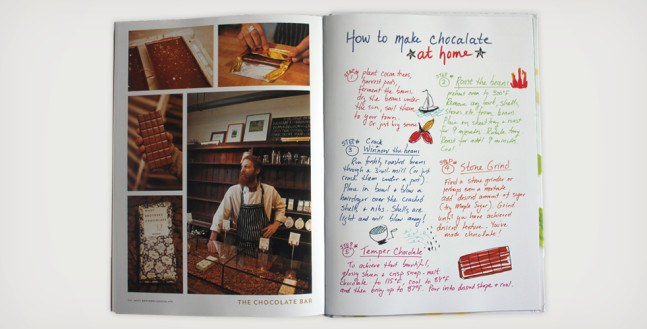 MAST BROTHERS CHOCOLATE
THE CHOCOLATE BAR
How to make chocolate
at home
STEP
1
plant cocoa trees,
harvest pods,
ferment the beans,
dry the beans under
the sun, sail them
to your town...
Or just buy some
STEP
2 Roast the beans
preheat oven to
Remove any
stones etc from beans.
Place on sheet tray & roast
for 9 minutes. Rotate tray.
Roast for other 9 minutes.
Cool.
STEP Crack
3 Winnow the beans
Run freshly roasted beans
through a mill (or just
crack them under a pot).
Place in bowl & blow a
hairdryer over the cracked
shells & nibs. Shells are
light and will blow away!
STEP
4 Stone Grind
Find a stone grinder or
perhaps even a
add desired amount of sugar
(try Maple Sugar). Grind
until you have achieved
desired texture... You've
made chocolate!
STEP
5 Temper Chocolate
To achieve that beautiful,
glossy sheen & crisp snap, melt
chocolate to 115°F, cool to 84°F
and then bring up to 87°F. Pour into desired shape & cool.